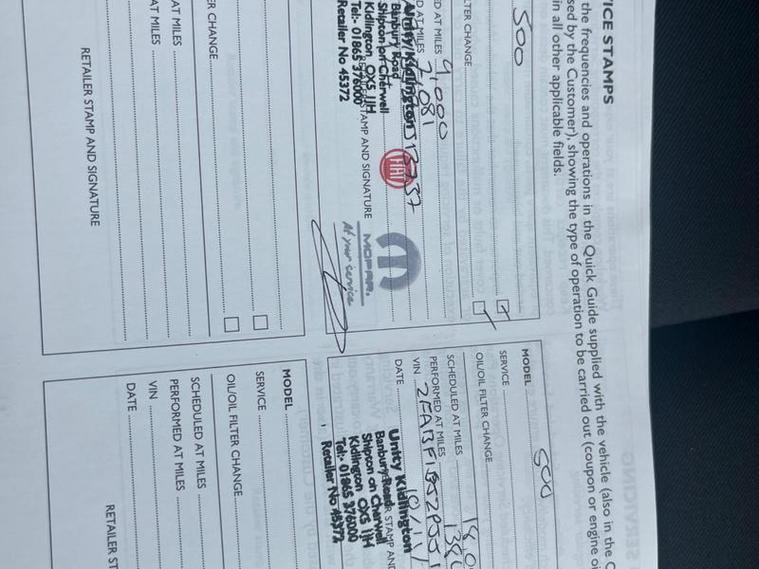 ICE STAMPS
the frequencies and operations in the Quick Guide supplied with the vehicle (also in the
sed by the Customer), showing the type of operation to be carried out (coupon or engine oi
in all other applicable fields.
500
LTER CHANGE
D AT MILES 9,000
D AT MILES
Unity Kidlington
Banbury Road
Shipton on Cherwell
Kidlington OX5 1JH
Tel:- 01865 376000
Retailer No 45372
STAMP AND SIGNATURE
FIAT
MOPAR.
At your service
MODEL 500
SERVICE
OIL/OIL FILTER CHANGE
SCHEDULED AT MILES
PERFORMED AT MILES
VIN
DATE
Unity Kidlington
Banbury Road
Shipton on Cherwell
Kidlington OX5 1JH
Tel:- 01865 376000
Retailer No 45372
STAMP AND
ER CHANGE
AT MILES
AT MILES
RETAILER STAMP AND SIGNATURE
MODEL
SERVICE
OIL/OIL FILTER CHANGE
SCHEDULED AT MILES
PERFORMED AT MILES
VIN
DATE
RETAILER ST